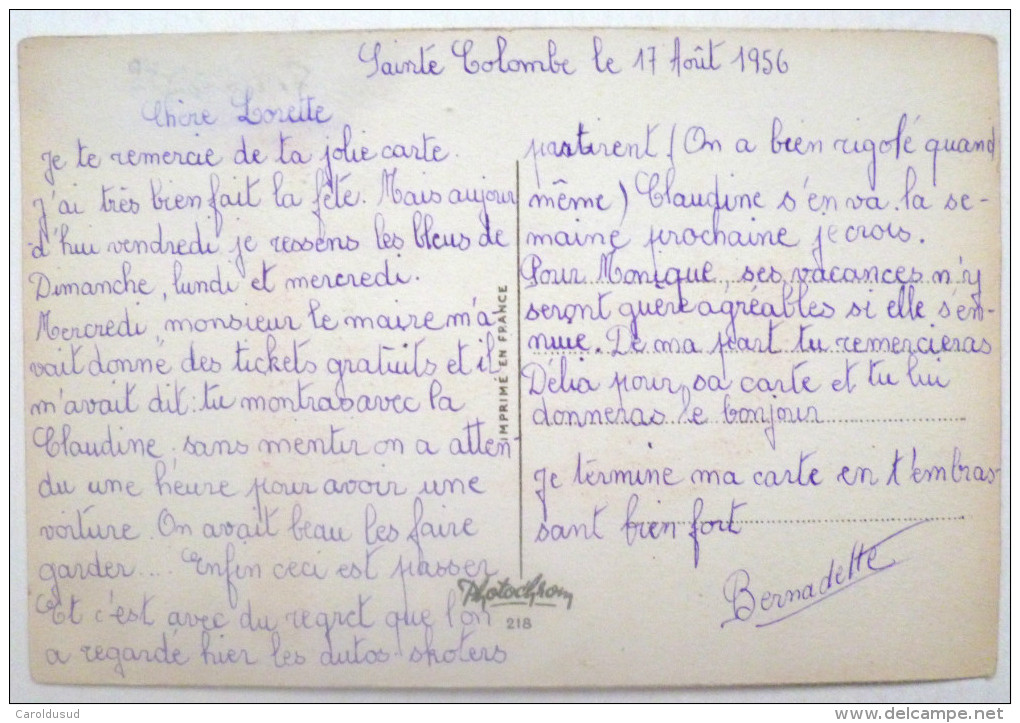 Sainte Colombe le 17 Août 1956
Chère Lorette
Je te remercie de ta jolie carte.
J'ai très bien fait la fête. Mais aujour
d'hui vendredi je ressens les bleus de
Dimanche, lundi et mercredi.
Mercredi, monsieur le maire m'a
vait donné des tickets gratuits et il
m'avait dit : tu montras avec la
Claudine, sans mentir on a atten
du une heure pour avoir une
voiture. On avait beau les faire
garder... Enfin ceci est passer
Et c'est avec du regret que l'on
a regardé hier les autos-skoters
partirent (On a bien rigolé quand
même) Claudine s'en va la se-
maine prochaine je crois.
Pour Monique, ses vacances n'y
seront guère agréables si elle s'en-
nuie. De ma part tu remercieras
Délia pour sa carte et tu lui
donneras le bonjour
Je termine ma carte en t'embras-
sant bien fort
Bernadette
IMPRIMÉ EN FRANCE
Photochrom
218
Caroldusud
www.delcampe.net